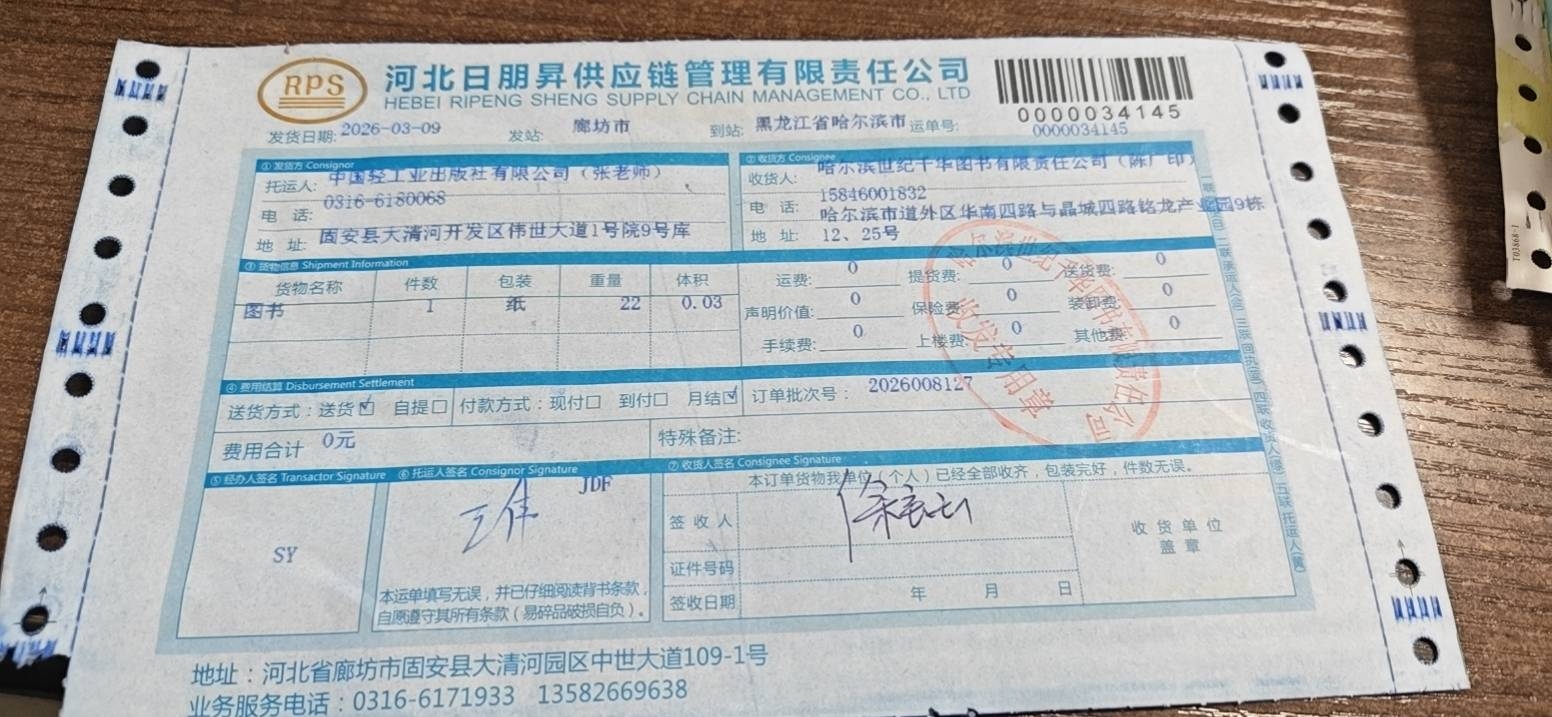 RPS 河北日朋昇供应链管理有限责任公司
HEBEI RIPENG SHENG SUPPLY CHAIN MANAGEMENT CO., LTD
0000034145
发货日期: 2026-03-09 发站: 廊坊市 到站: 黑龙江省哈尔滨市 运单号: 0000034145
① 发货方 Consignor
托运人: 中国轻工业出版社有限公司（张老师）
电 话: 0316-6180068
地 址: 固安县大清河开发区伟世大道1号院9号库
② 收货方 Consignee
收货人: 哈尔滨世纪千华图书有限责任公司（陈广印）
电 话: 15846001832
地 址: 哈尔滨市道外区华南四路与晶城四路铭龙产业园9栋
12、25号
③ 货物信息 Shipment Information
货物名称 件数 包装 重量 体积
图书 1 纸 22 0.03
运费: 0 提货费: 0 送货费: 0
声明价值: 0 保险费: 0 装卸费: 0
手续费: 0 上楼费: 0 其他费: 0
哈尔滨世纪千华图书有限责任公司
收发专用章
④ 费用结算 Disbursement Settlement
送货方式：送货☑ 自提□ 付款方式：现付□ 到付□ 月结☑ 订单批次号： 2026008127
费用合计 0元 特殊备注:
⑤ 经办人签名 Transactor Signature
SY
⑥ 托运人签名 Consignor Signature
JDF
王伟
本运单填写无误，并已仔细阅读背书条款，
自愿遵守其所有条款（易碎品破损自负）。
⑦ 收货人签名 Consignee Signature
本订单货物我单位（个人）已经全部收齐，包装完好，件数无误。
签 收 人
证件号码
签收日期 年 月 日
收 货 单 位
盖 章
地址：河北省廊坊市固安县大清河园区中世大道109-1号
业务服务电话：0316-6171933 13582669638